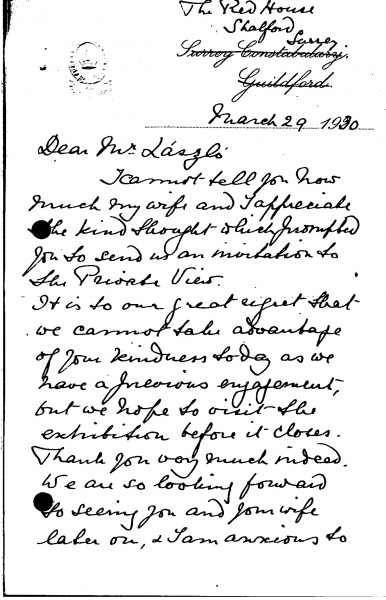 The Red House
Shalford
Surrey
Surrey Constabulary.
Guildford.
March 29 1930
Dear Mr. László
I cannot tell you how
much my wife and I appreciate
the kind thought which prompted
you to send us an invitation to
the Private View.
It is to our great regret that
we cannot take advantage
of your kindness today as we
have a previous engagement,
but we hope to visit the
exhibition before it closes.
Thank you very much indeed.
We are so looking forward
to seeing you and your wife
later on, & I am anxious to